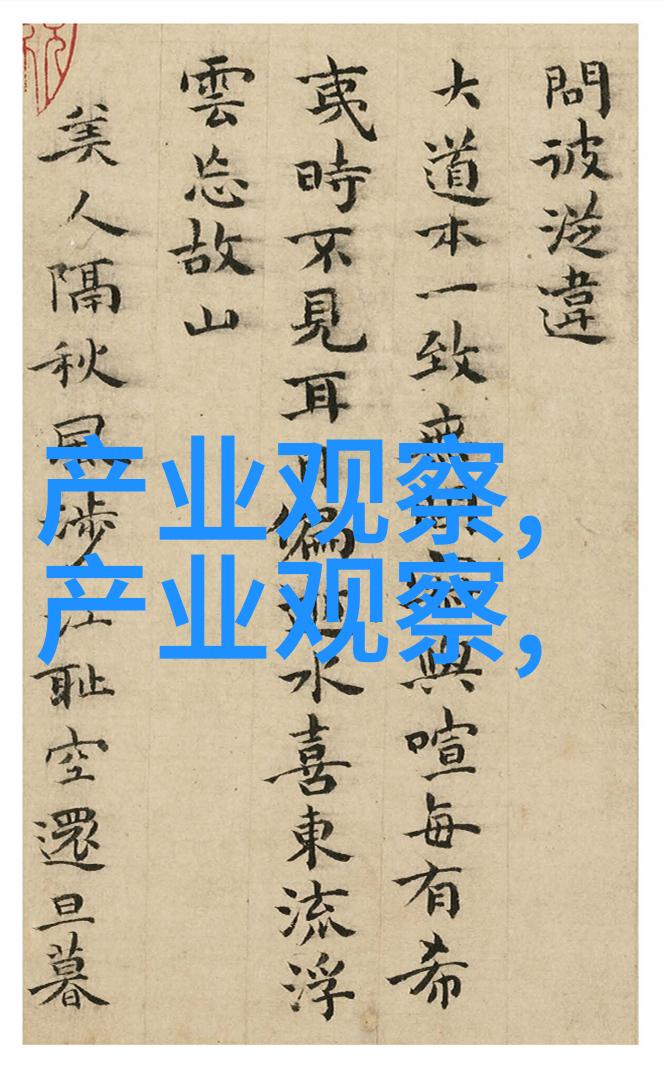 問彼違
大道本一致無與喧每有希
夷時不見耳偏水喜東流浮
雲忘故山
美人隔秋風涉江耻空還旦暮
产业观察,
产业观察,